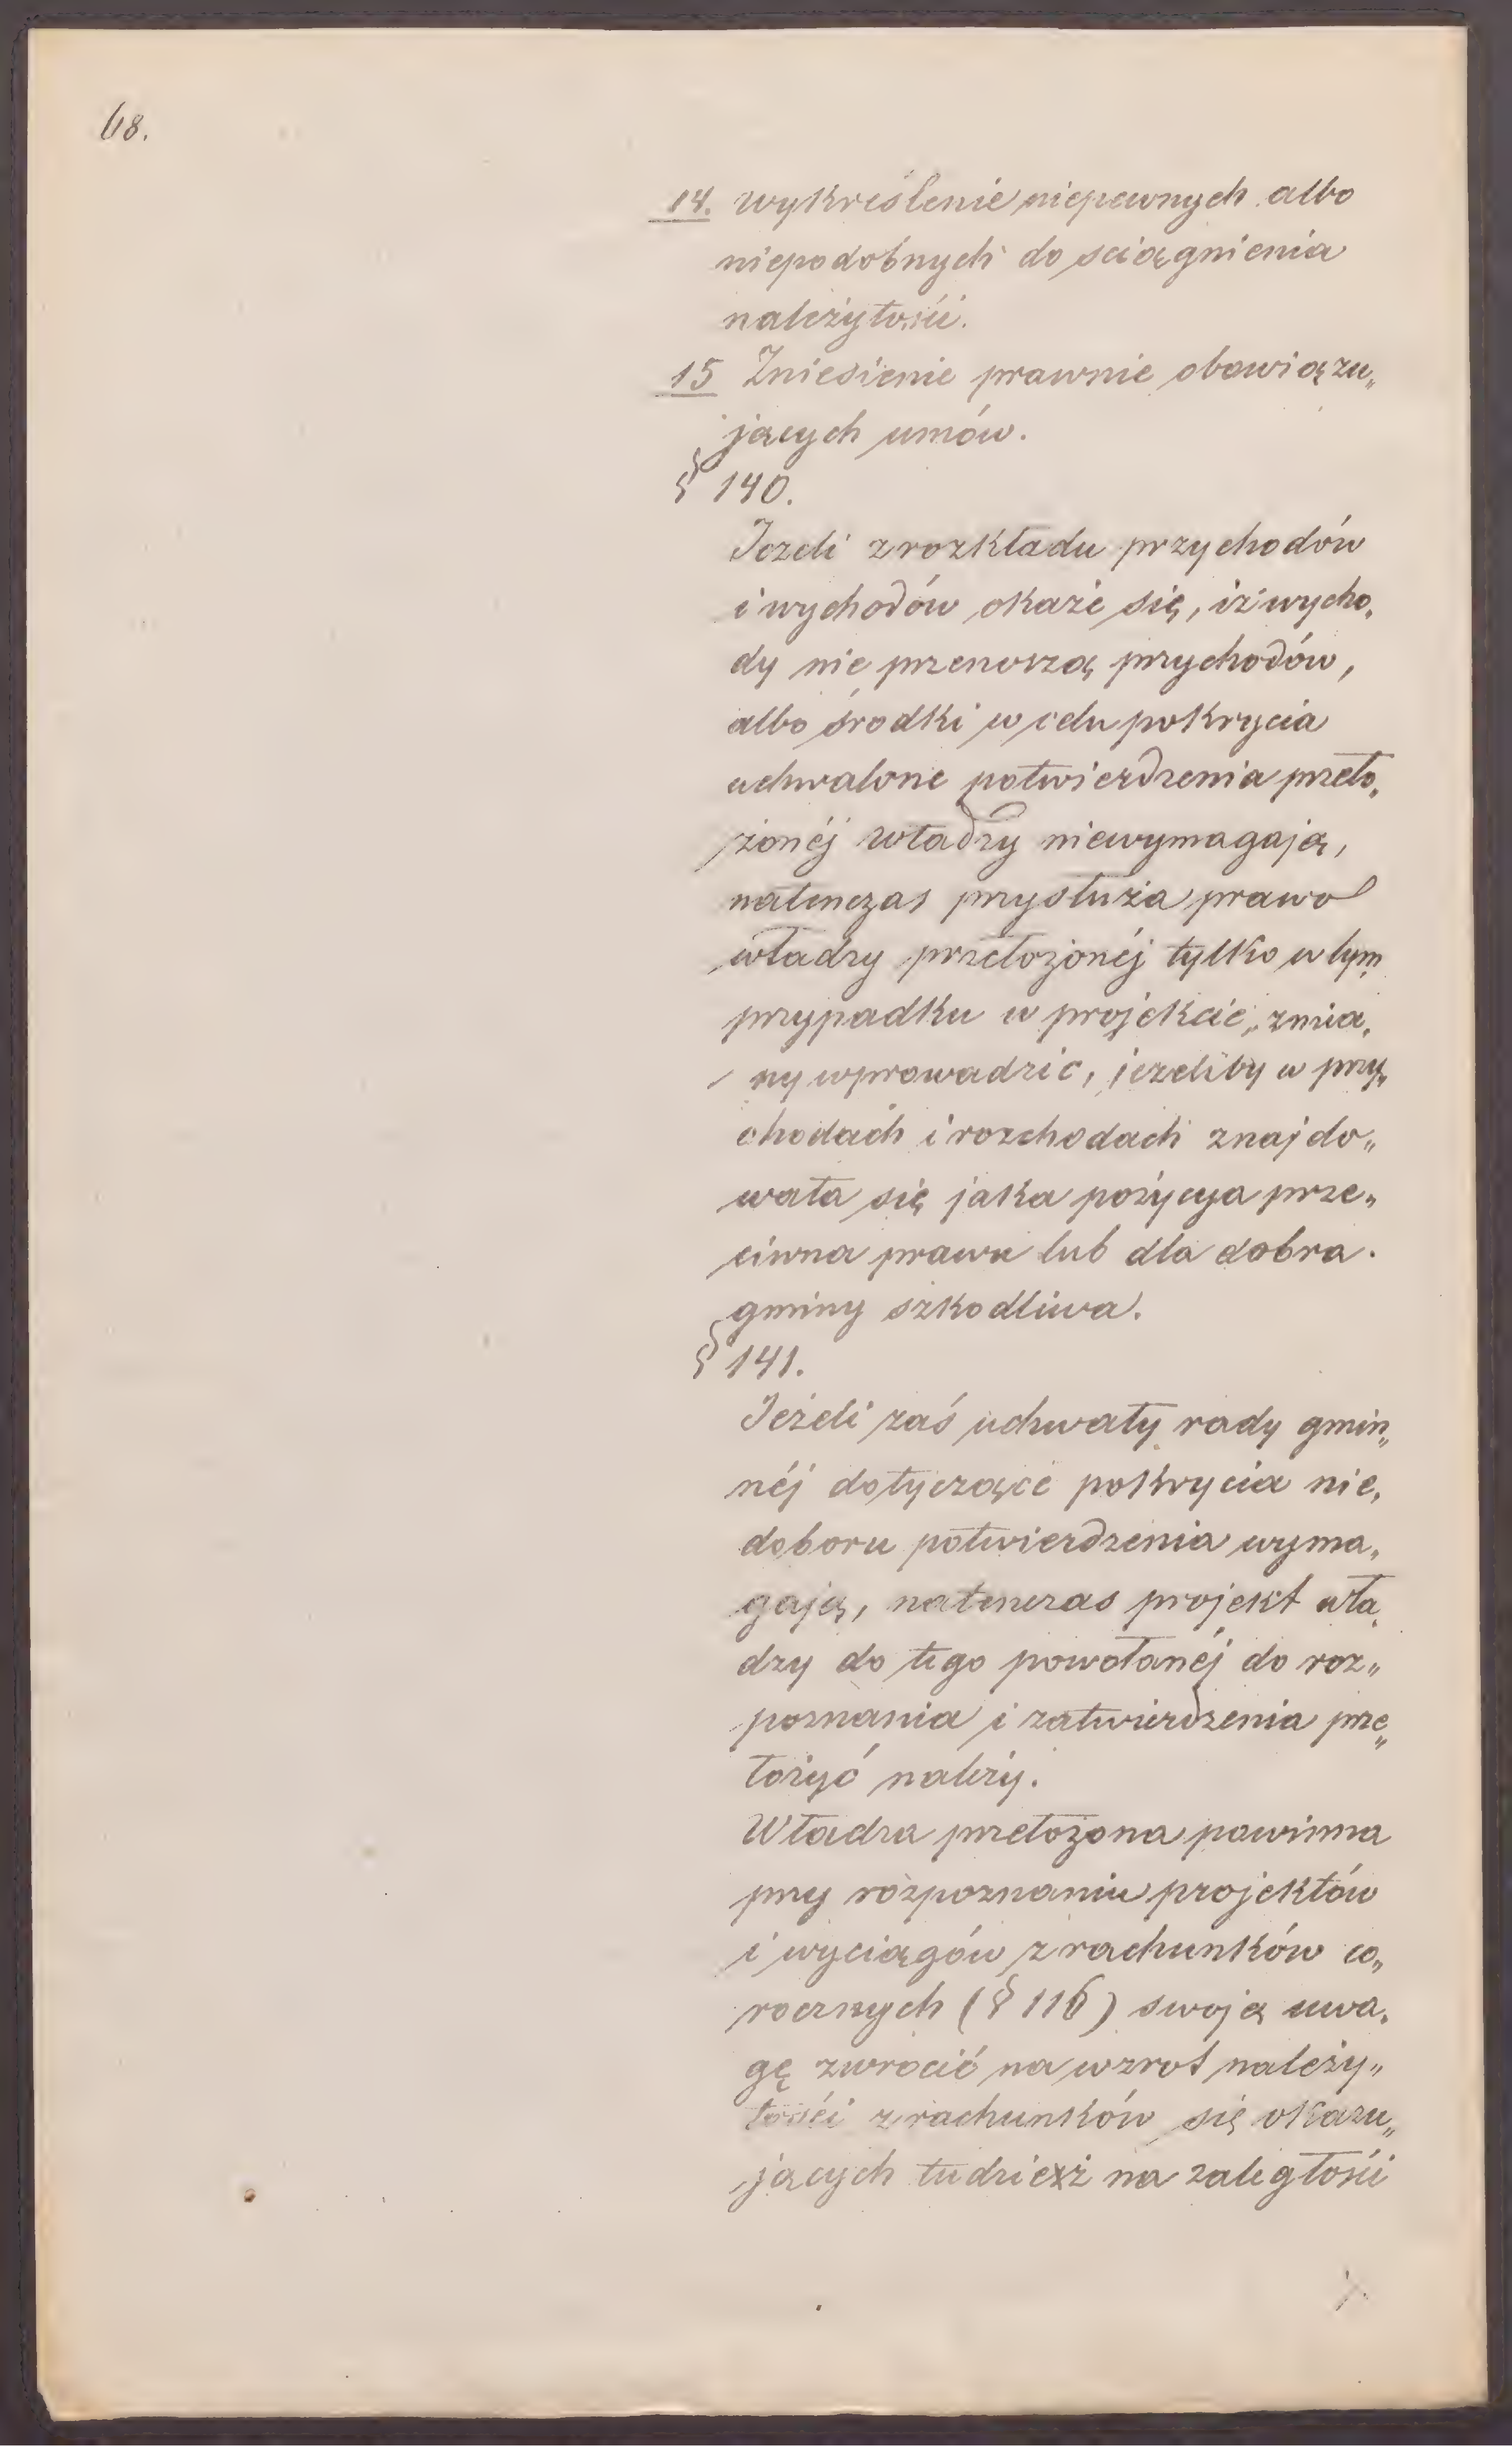 68.
14. wykreślenie niepewnych albo
niepodobnych do sciągnienia
należytości.
15 Zniesienie prawnie obowiązu„
jących umów.
§ 140.
Jezeli z rozkładu przychodów
i wychodów okaże się, iż wycho„
dy nie przenoszą przychodów,
albo środki w celu pokrycia
uchwalone potwierdzenia przeło„
żonéj władzy niewymagają,
natenczas przysłuża prawo
władzy przełożonéj tylko w tym
przypadku w projekcie, zmia„
ny wprowadzić, jezeliby w przy„
chodach i rozchodach znajdo„
wała się jaka pożycya prze„
ciwna prawu lub dla dobra
gminy szkodliwa.
§ 141.
Jeżeli zaś uchwały rady gmin„
néj dotyczące pokrycia nie„
doboru potwierdzenia wyma„
gają, natenczas projekt wła„
dzy do tego powołanéj do roz„
poznania i zatwierdzenia prze„
łożyć należy.
Władza przełożona powinna
przy rozpoznaniu projektów
i wyciągów z rachunków co„
rocznych (§ 116) swoją uwa„
gę zwrócić na wzrot należy„
tości z rachunków się okazu„
jących tudzież na zaległości